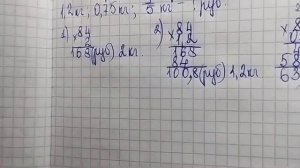 1,2кг; 0,75кг; 4/5 кг - ? руб.
1) ×84
2
168(руб) 2 кг.
2) ×84
1,2
168
84
100,8(руб) 1,2кг